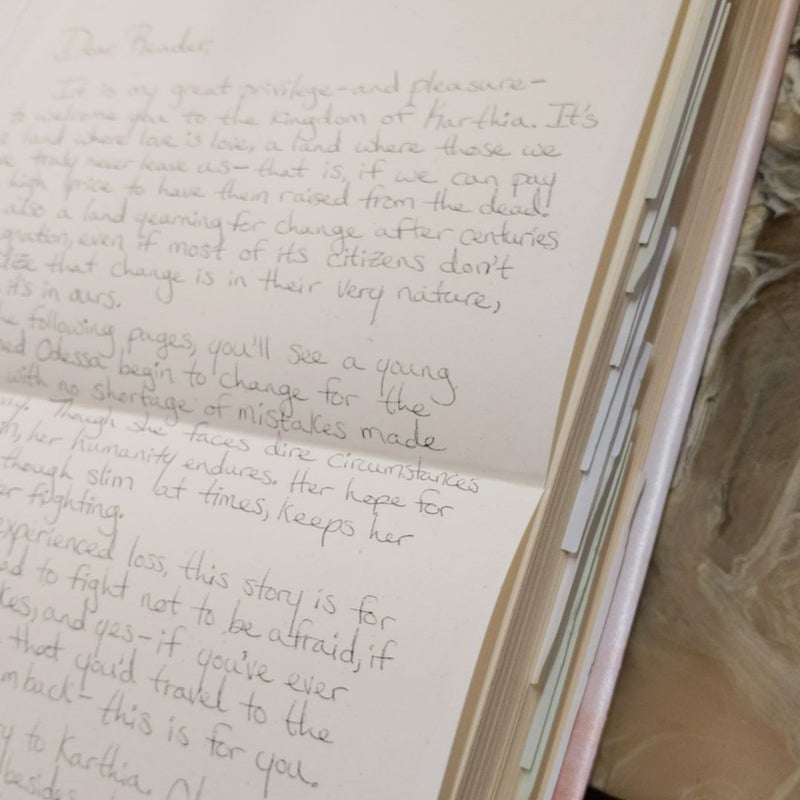 Dear Reader,
It is my great privilege-and pleasure-
to welcome you to the kingdom of Karthia. It's
a land where love is love, a land where those we
truly never leave us-that is, if we can pay
high price to have them raised from the dead.
also a land yearning for change after centuries
gnation, even if most of its citizens don't
that change is in their very nature,
it's in ours.
he following pages, you'll see a young
med Odessa begin to change for the
with no shortage of mistakes made
Though she faces dire circumstances
her humanity endures. Her hope for
though slim at times, keeps her
er fighting.
experienced loss, this story is for
ad to fight not to be afraid, if
kes, and yes-if you've ever
that you'd travel to the
m back-this is for you.
to Karthia.
besides